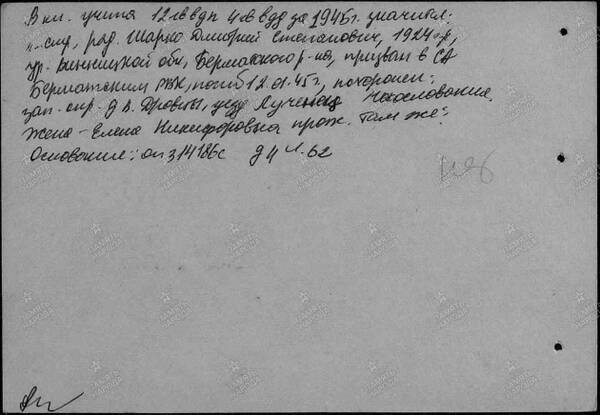 В кн. учета 12 гввдп 4 гв вдд за 1945 г. значится:
"... стр, ряд. Шарко Дмитрий Степанович, 1924 г.р,
ур. Винницкой обл, Бершадского р-на, призван в СА
Бершадским РВК, погиб 12.01.45 г, похоронен:
зап. окр. д. уезд Лученец Чехословакия.
Жена - Елена Никифоровна прож. там же".
Основание: оп 314186с д 4 л. 62
ПАМЯТЬ НАРОДА